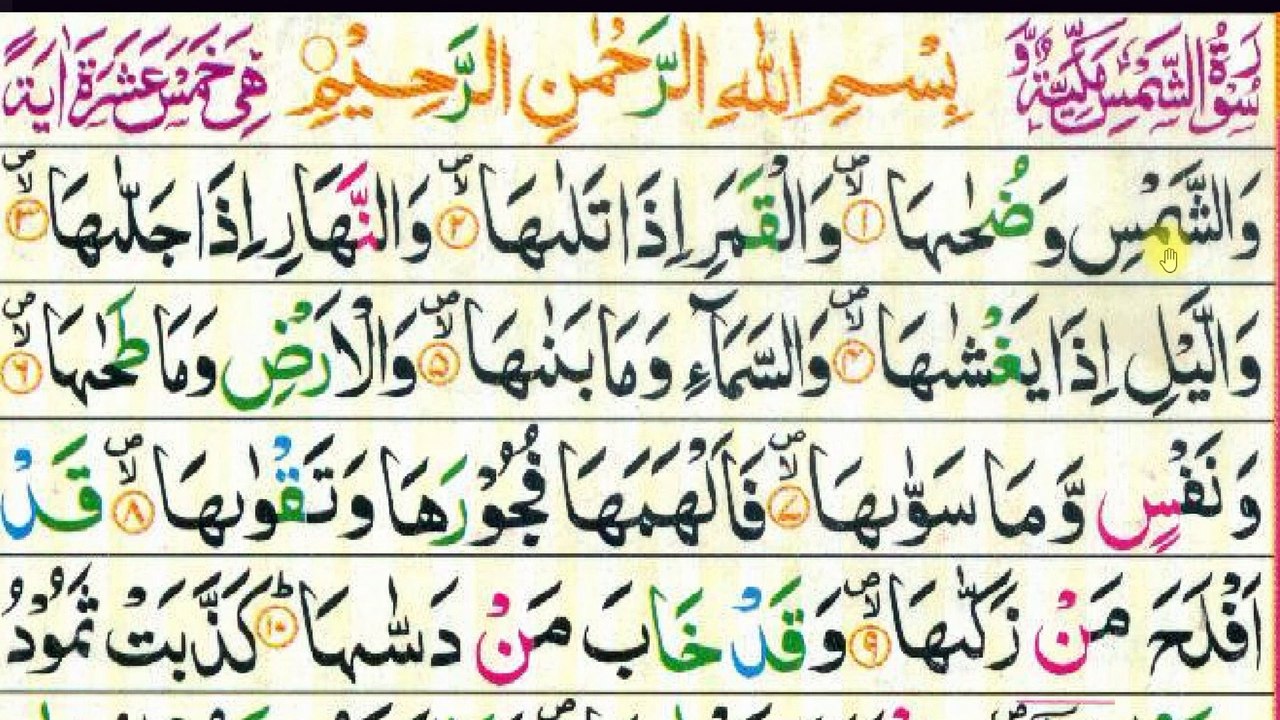 سُوْرَةُ الشَّمْسِ مَكِّيَّةٌ وَّ بِسْمِ اللّٰهِ الرَّحْمٰنِ الرَّحِيْمِ هِيَ خَمْسَ عَشَرَةَ اٰيَةً
وَالشَّمْسِ وَضُحٰىهَا ۪ۙ ۱ وَالْقَمَرِ اِذَا تَلٰىهَا ۪ۙ ۲ وَالنَّهَارِ اِذَا جَلّٰىهَا ۪ۙ ۳
وَالَّيْلِ اِذَا يَغْشٰىهَا ۪ۙ ۴ وَالسَّمَآءِ وَمَا بَنٰىهَا ۪ۙ ۵ وَالْاَرْضِ وَمَا طَحٰىهَا ۪ۙ ۶
وَنَفْسٍ وَّمَا سَوّٰىهَا ۪ۙ ۷ فَاَلْهَمَهَا فُجُوْرَهَا وَتَقْوٰىهَا ۪ۙ ۸ قَدْ
اَفْلَحَ مَنْ زَكّٰىهَا ۪ۙ ۹ وَقَدْ خَابَ مَنْ دَسّٰىهَا ؕ ۱۰ كَذَّبَتْ ثَمُوْدُ